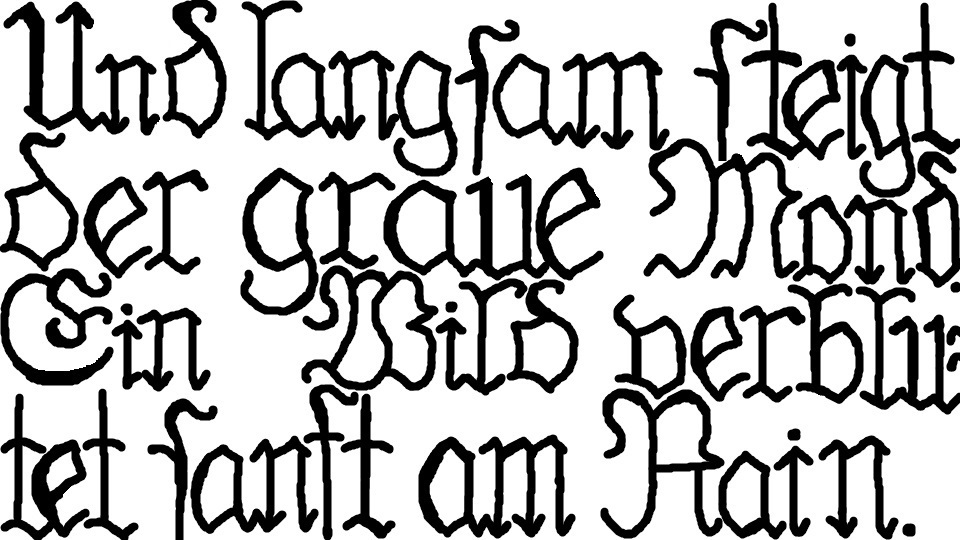 Und langſam ſteigt
der graue Mond
Ein Bild verblu=
tet ſanft am Rain.